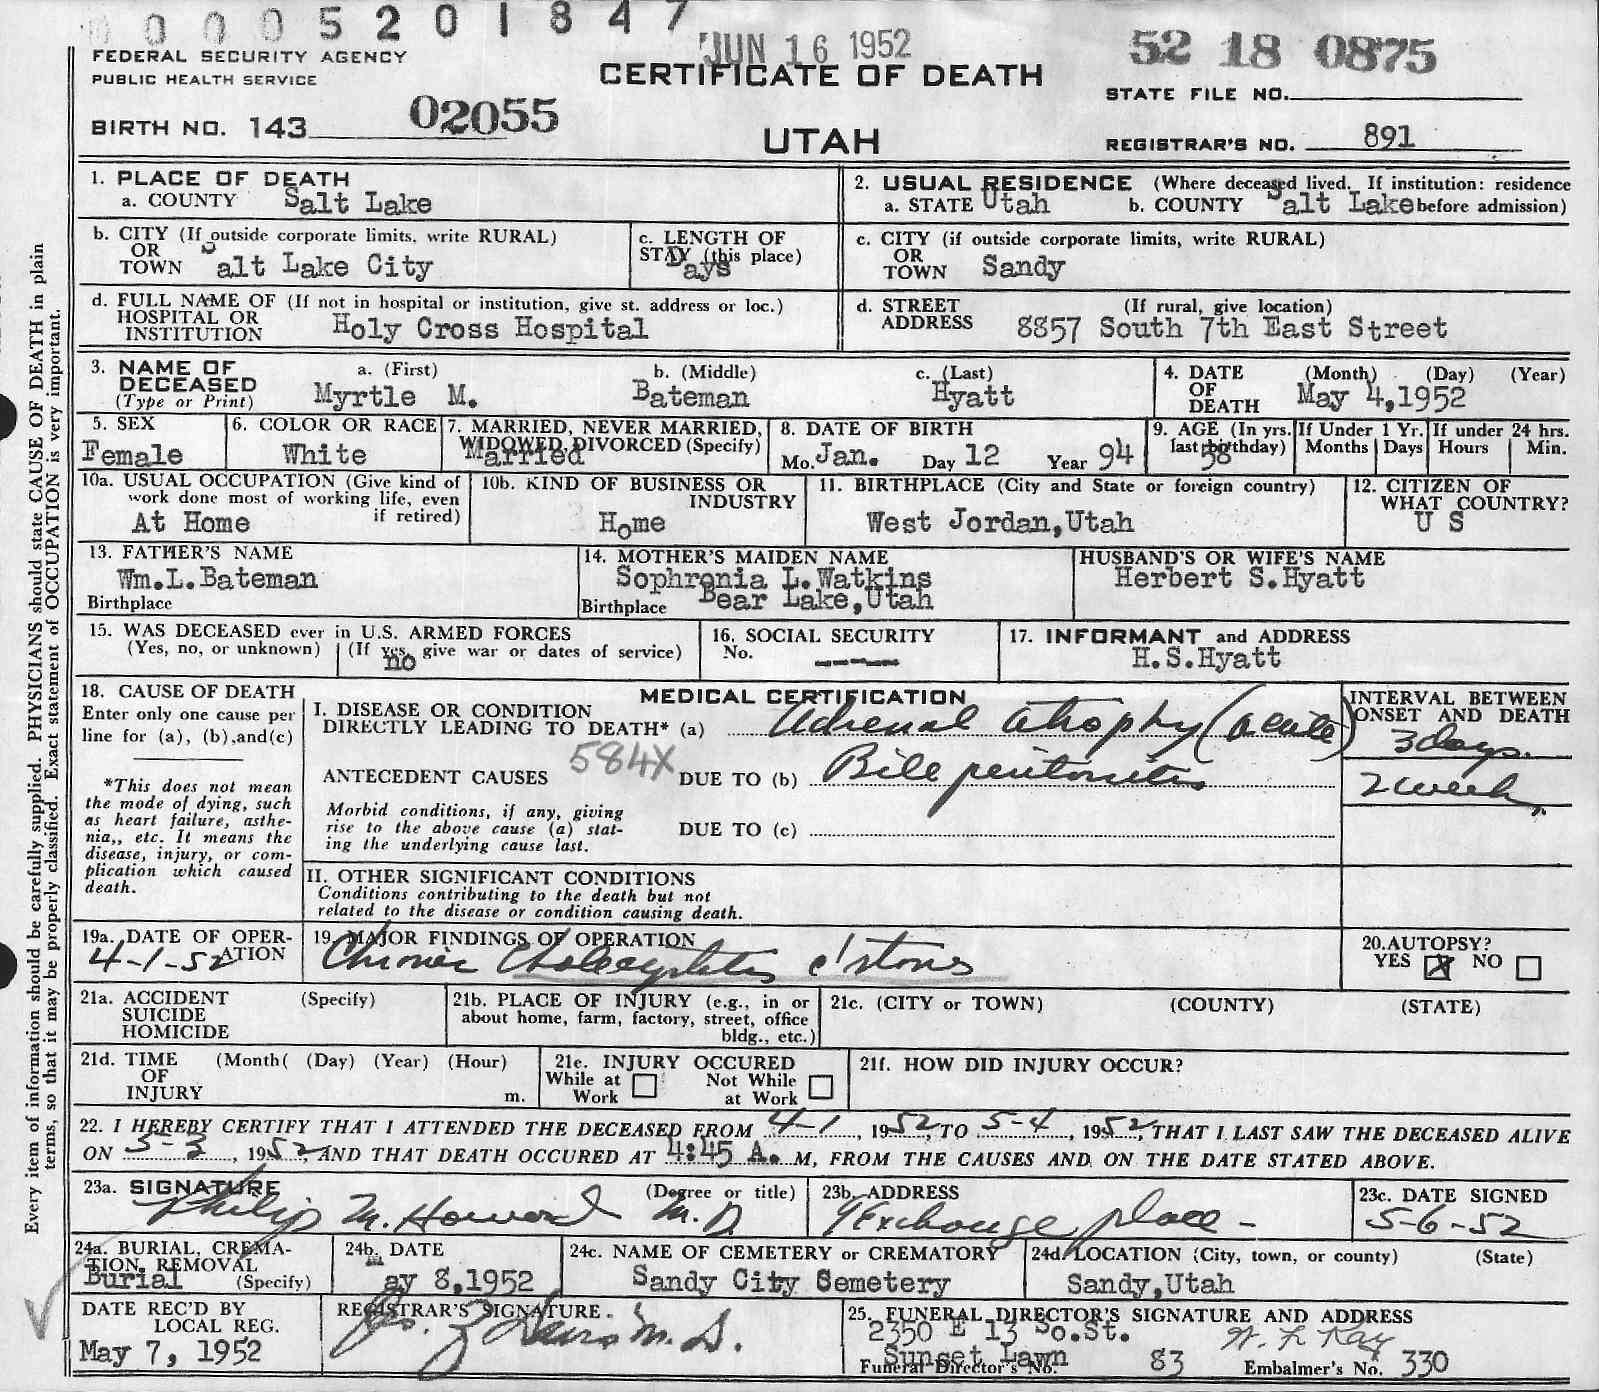 0000520 1847
JUN 16 1952
52 18 0875
FEDERAL SECURITY AGENCY
PUBLIC HEALTH SERVICE
CERTIFICATE OF DEATH
STATE FILE NO.
BIRTH NO. 143 02055
UTAH
REGISTRAR'S NO. 891
Every item of information should be carefully supplied. PHYSICIANS should state CAUSE OF DEATH in plain
terms, so that it may be properly classified. Exact statement of OCCUPATION is very important.
1. PLACE OF DEATH
a. COUNTY Salt Lake
2. USUAL RESIDENCE (Where deceased lived. If institution: residence
a. STATE Utah b. COUNTY Salt Lake before admission)
b. CITY (If outside corporate limits, write RURAL)
OR
TOWN Salt Lake City
c. LENGTH OF
STAY (this place)
Days
c. CITY (if outside corporate limits, write RURAL)
OR
TOWN Sandy
d. FULL NAME OF (If not in hospital or institution, give st. address or loc.)
HOSPITAL OR
INSTITUTION Holy Cross Hospital
d. STREET (If rural, give location)
ADDRESS 8857 South 7th East Street
3. NAME OF
DECEASED
(Type or Print)
a. (First)
Myrtle M.
b. (Middle)
Bateman
c. (Last)
Hyatt
4. DATE (Month) (Day) (Year)
OF
DEATH May 4,1952
5. SEX
Female
6. COLOR OR RACE
White
7. MARRIED, NEVER MARRIED,
WIDOWED, DIVORCED (Specify)
Married
8. DATE OF BIRTH
Mo. Jan. Day 12 Year 94
9. AGE (In yrs.
last birthday)
58
If Under 1 Yr.
Months Days
If under 24 hrs.
Hours Min.
10a. USUAL OCCUPATION (Give kind of
work done most of working life, even
if retired)
At Home
10b. KIND OF BUSINESS OR
INDUSTRY
Home
11. BIRTHPLACE (City and State or foreign country)
West Jordan,Utah
12. CITIZEN OF
WHAT COUNTRY?
U S
13. FATHER'S NAME
Wm.L.Bateman
Birthplace
14. MOTHER'S MAIDEN NAME
Sophronia L.Watkins
Birthplace Bear Lake,Utah
HUSBAND'S OR WIFE'S NAME
Herbert S.Hyatt
15. WAS DECEASED ever in U.S. ARMED FORCES
(Yes, no, or unknown) (If yes, give war or dates of service)
no
16. SOCIAL SECURITY
No. ----
17. INFORMANT and ADDRESS
H.S.Hyatt
18. CAUSE OF DEATH
Enter only one cause per
line for (a), (b),and(c)
*This does not mean
the mode of dying, such
as heart failure, asthe-
nia,, etc. It means the
disease, injury, or com-
plication which caused
death.
MEDICAL CERTIFICATION
I. DISEASE OR CONDITION
DIRECTLY LEADING TO DEATH* (a) Adrenal atrophy (acute)
584X
ANTECEDENT CAUSES DUE TO (b) Bile peritonitis
Morbid conditions, if any, giving
rise to the above cause (a) stat-
ing the underlying cause last.
DUE TO (c)
INTERVAL BETWEEN
ONSET AND DEATH
3 days.
2 weeks
II. OTHER SIGNIFICANT CONDITIONS
Conditions contributing to the death but not
related to the disease or condition causing death.
19a. DATE OF OPER-
ATION
4-1-52
19. MAJOR FINDINGS OF OPERATION
Chronic Cholecystitis c̄ stones
20.AUTOPSY?
YES X NO
21a. ACCIDENT (Specify)
SUICIDE
HOMICIDE
21b. PLACE OF INJURY (e.g., in or
about home, farm, factory, street, office
bldg., etc.)
21c. (CITY or TOWN) (COUNTY) (STATE)
21d. TIME (Month( (Day) (Year) (Hour)
OF
INJURY m.
21e. INJURY OCCURED
While at Work Not While at Work
21f. HOW DID INJURY OCCUR?
22. I HEREBY CERTIFY THAT I ATTENDED THE DECEASED FROM 4-1, 1952, TO 5-4, 1952, THAT I LAST SAW THE DECEASED ALIVE
ON 5-3, 1952, AND THAT DEATH OCCURED AT 4:45 A. M, FROM THE CAUSES AND ON THE DATE STATED ABOVE.
23a. SIGNATURE (Degree or title)
Philip M. Howard M.D.
23b. ADDRESS
9 Exchange place -
23c. DATE SIGNED
5-6-52
24a. BURIAL, CREMA-
TION, REMOVAL
Burial (Specify)
24b. DATE
May 8,1952
24c. NAME OF CEMETERY OR CREMATORY
Sandy City Semetery
24d. LOCATION (City, town, or county) (State)
Sandy,Utah
DATE REC'D BY
LOCAL REG.
May 7, 1952
REGISTRAR'S SIGNATURE
M.D.
25. FUNERAL DIRECTOR'S SIGNATURE AND ADDRESS
2350 E 13 So.St. W. L Kay
Sunset Lawn
Funeral Director's No. 83 Embalmer's No. 330